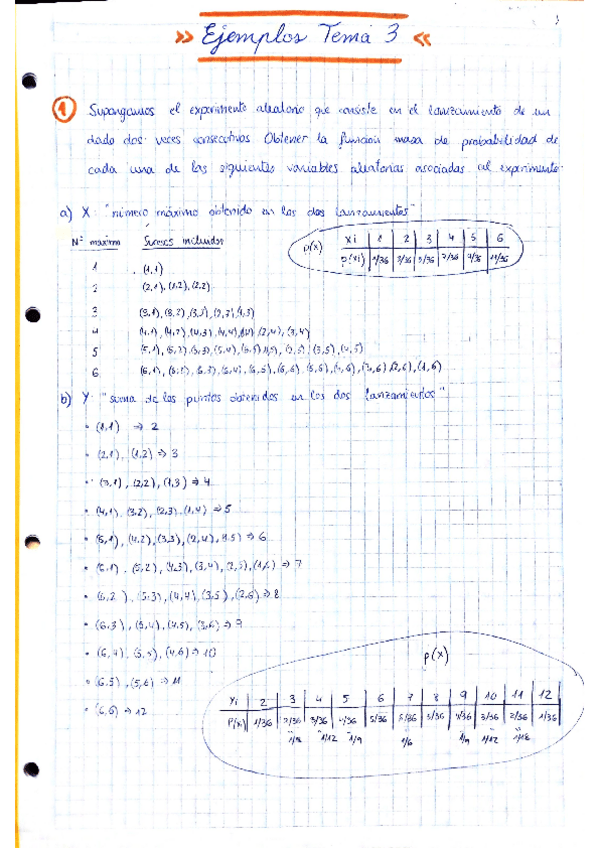 » Ejemplos Tema 3 «
1 Supongamos el experimento aleatorio que consiste en el lanzamiento de un
dado dos veces consecutivas Obtener la función masa de probabilidad de
cada una de las siguientes variables aleatorias asociadas al experimento.
a) X: "número máximo obtenido en los dos lanzamientos"
Nº máximo Sucesos incluidos
p(x) xi 1 2 3 4 5 6
p(xi) 1/36 3/36 5/36 7/36 9/36 11/36
1 (1,1)
2 (2,1), (1,2), (2,2)
3 (3,1), (3,2), (3,3), (2,3), (1,3)
4 (4,1), (4,2), (4,3), (4,4), (2,4), (3,4)
5 (5,1), (5,2), (5,3), (5,4), (5,5), (2,5), (3,5), (4,5)
6 (6,1), (6,3), (6,4), (6,5), (6,6), (5,6), (4,6), (3,6), (2,6), (1,6)
b) Y: "suma de los puntos obtenidos en los dos lanzamientos"
• (1,1) ⇒ 2
• (2,1), (1,2) ⇒ 3
• (3,1), (2,2), (1,3) ⇒ 4
• (4,1), (3,2), (2,3), (1,4) ⇒ 5
• (5,1), (4,2), (3,3), (2,4), (1,5) ⇒ 6
• (6,1), (5,2), (4,3), (3,4), (2,5), (1,6) ⇒ 7
• (6,2), (5,3), (4,4), (3,5), (2,6) ⇒ 8
• (6,3), (5,4), (4,5), (3,6) ⇒ 9
• (6,4), (5,5), (4,6) ⇒ 10
• (6,5), (5,6) ⇒ 11
• (6,6) ⇒ 12
p(x)
Yi 2 3 4 5 6 7 8 9 10 11 12
P(x) 1/36 2/36 3/36 4/36 5/36 6/36 5/36 4/36 3/36 2/36 1/36
1/18 1/12 1/9 1/6 1/9 1/12 1/18